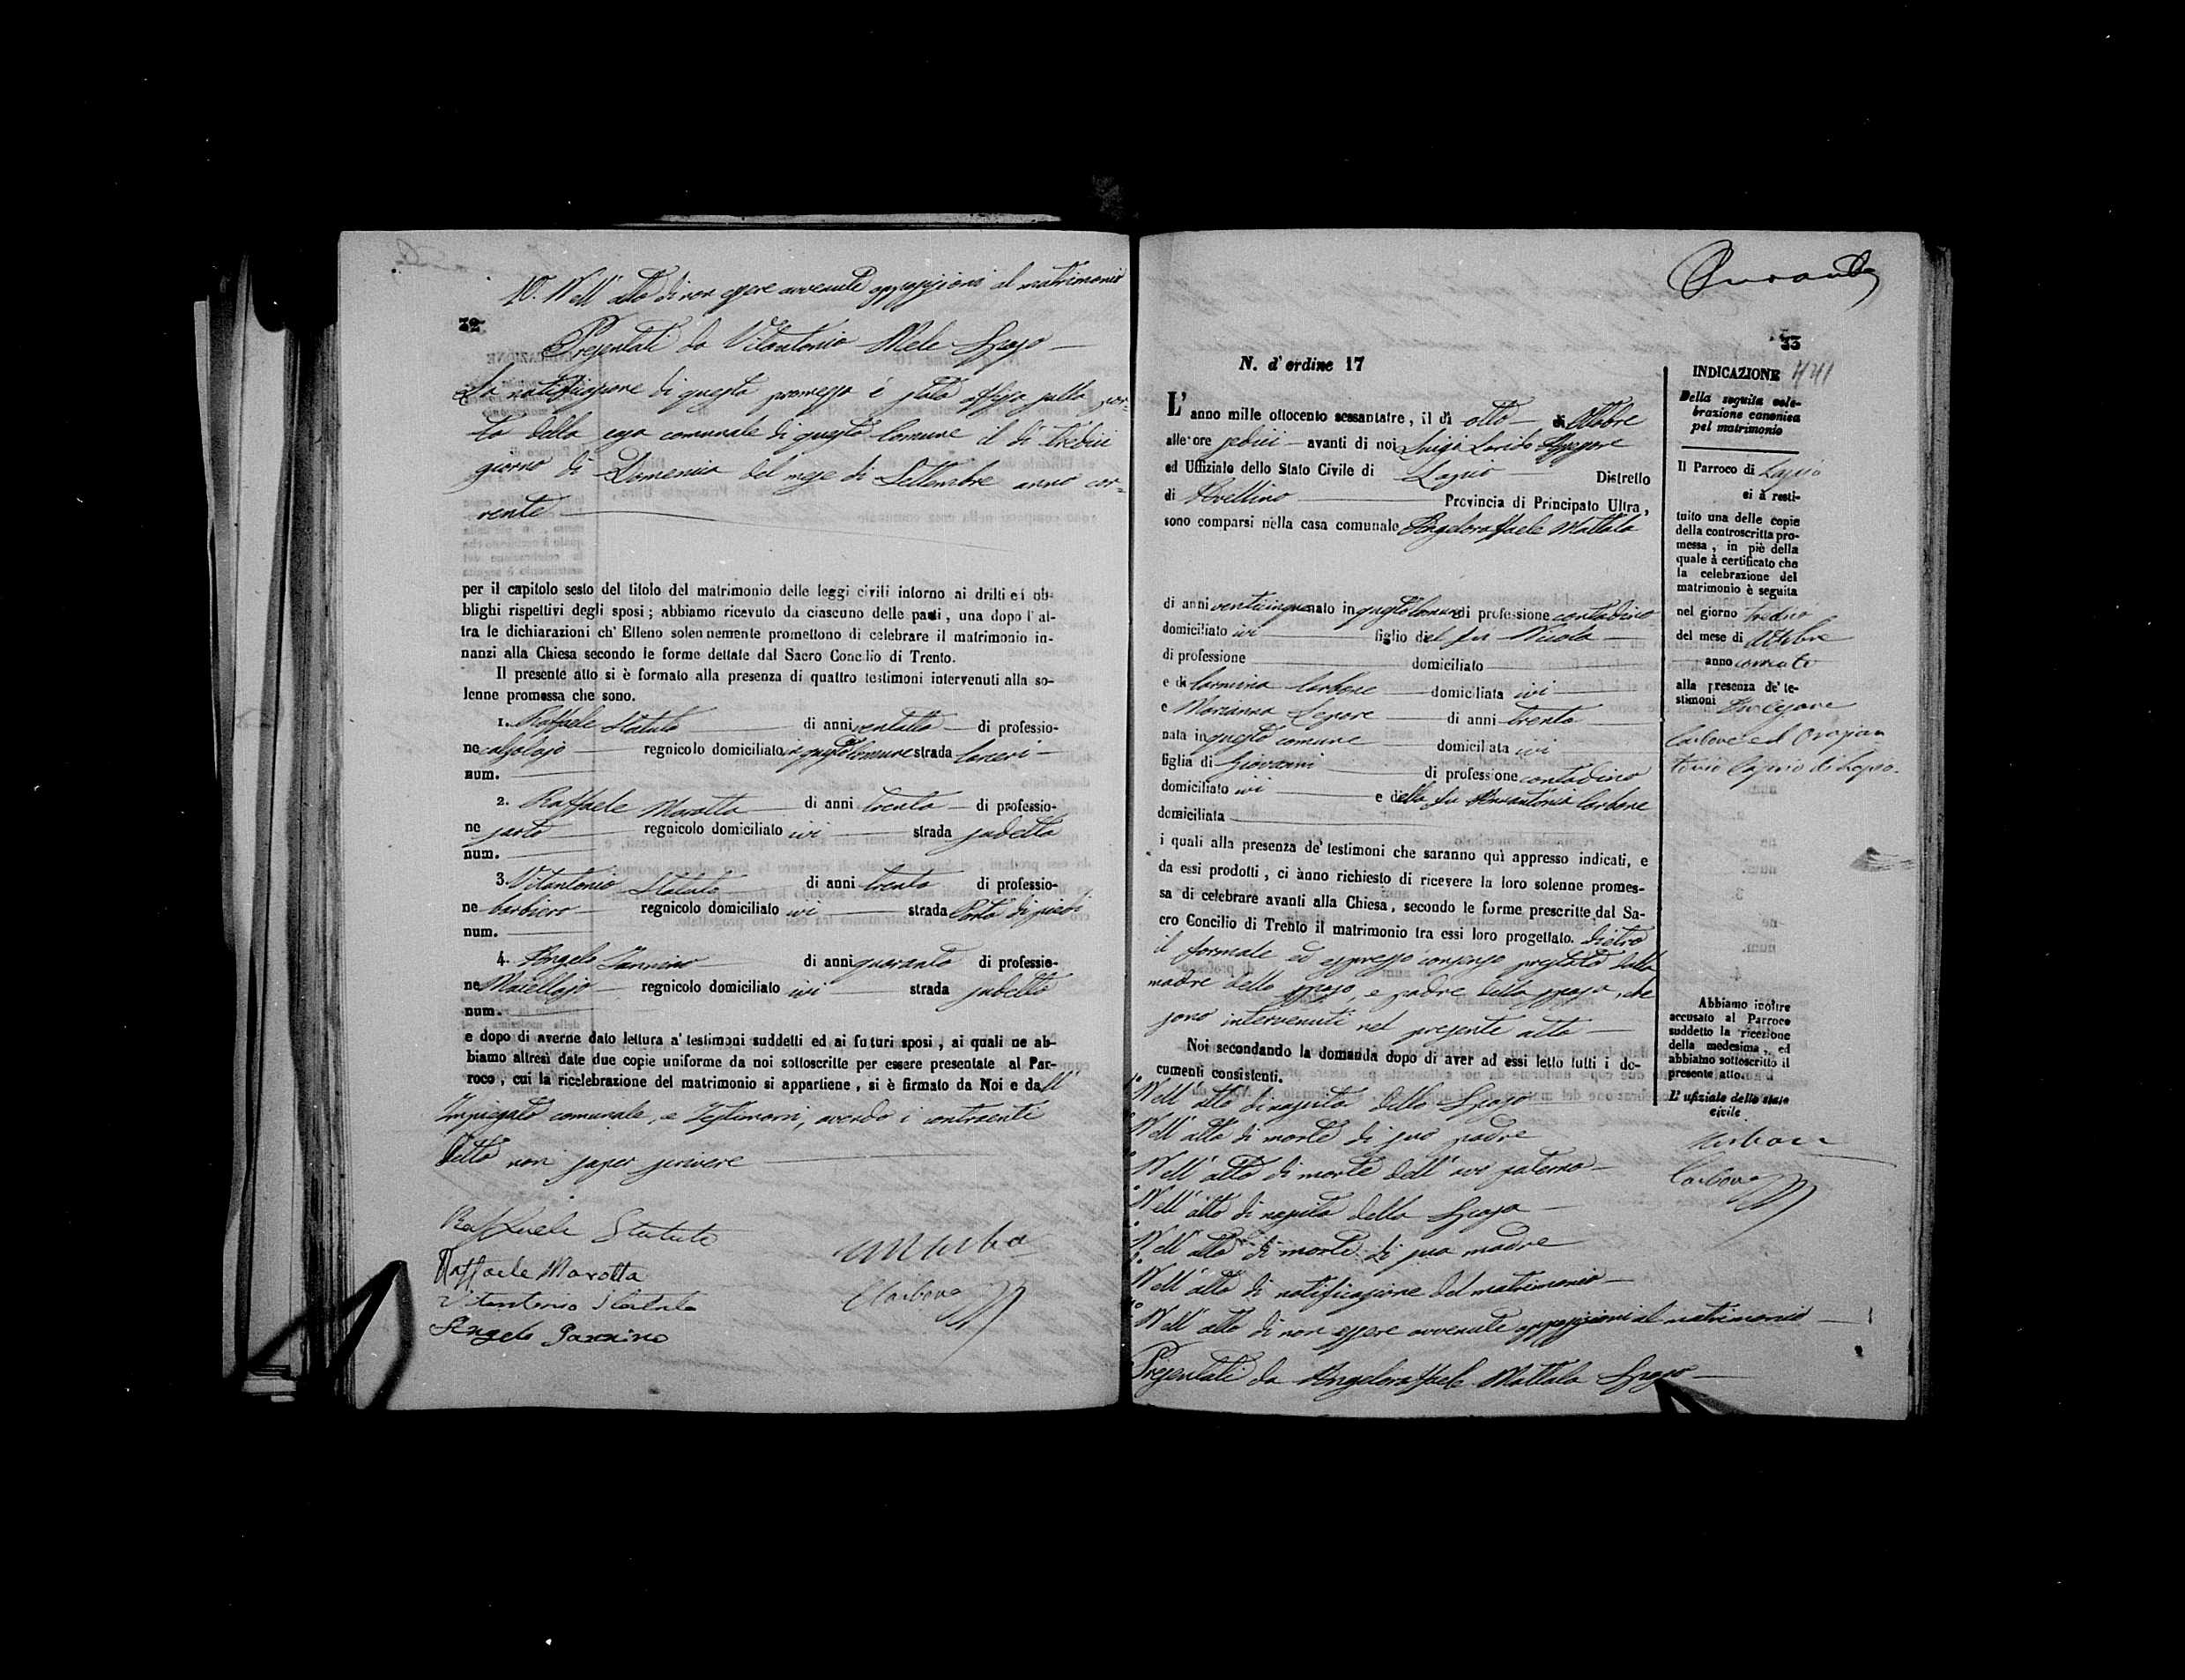 10. Nell' atto di non essere avvenute opposizioni al matrimonio
32
Presentati da Vitantonio Mele Sposo
La notificazione di questa promessa è stata affissa sulla por-
ta della casa comunale di questo Comune il di tredici
giorno di Domenica del mese di Settembre anno cor-
rente
per il capitolo sesto del titolo del matrimonio delle leggi civili intorno ai dritti ed ob-
blighi rispettivi degli sposi ; abbiamo ricevuto da ciascuno delle parti , una dopo l' al-
tra le dichiarazioni ch' Elleno solennemente promettono di celebrare il matrimonio in-
nanzi alla Chiesa secondo le forme dettate dal Sacro Concilio di Trento.
Il presente atto si è formato alla presenza di quattro testimoni intervenuti alla so-
lenne promessa che sono.
1. Raffaele Statuto di anni ventotto di professio-
ne calzolajo regnicolo domiciliato in questo Comune strada
num.
2. Raffaele Marotta di anni trenta di professio-
ne sarto regnicolo domiciliato ivi strada
num.
3. Vitantonio Statuto di anni trenta di professio-
ne barbiere regnicolo domiciliato ivi strada Porta di piedi
num.
4. Angelo Iannino di anni quaranta di professio-
ne Macellajo regnicolo domiciliato ivi strada
num.
e dopo di averne dato lettura a' testimoni suddetti ed ai futuri sposi , ai quali ne ab-
biamo altresì date due copie uniforme da noi sottoscritte per essere presentate al Par-
roco , cui la ricelebrazione del matrimonio si appartiene , si è firmato da Noi e dall'
Impiegato comunale, e Testimoni, avendo i contraenti
detto non saper scrivere
Raffaele Statuto
Raffaele Marotta
Vitantonio Statuto
Angelo Iannino
Carbone
33
N. d'ordine 17
L' anno mille ottocento sessantatre , il dì otto di Ottobre
alle ore sedici avanti di noi Luigi Assessore
ed Uffiziale dello Stato Civile di Lapio Distretto
di Avellino Provincia di Principato Ultra ,
sono comparsi nella casa comunale Angeloraffaele Mattala
di anni venticinque nato in questo Comune di professione contadino
domiciliato ivi figlio del fu Nicola
di professione domiciliato
e di Carmina Carbone domiciliata ivi
e Marianna Lepore di anni trenta
nata in questo comune domiciliata ivi
figlia di Giovanni di professione contadino
domiciliato ivi e della fu Carbone
domiciliata
i quali alla presenza de' testimoni che saranno quì appresso indicati, e
da essi prodotti , ci ànno richiesto di ricevere la loro solenne promes-
sa di celebrare avanti alla Chiesa , secondo le forme prescritte dal Sa-
cro Concilio di Trento il matrimonio tra essi loro progettato. dietro
il formale ed espresso consenso prestato dalla
madre dello sposo, e padre della sposa, che
sono intervenuti nel presente atto
Noi secondando la domanda dopo di aver ad essi letto tutti i do-
cumenti consistenti.
1° Nell' atto di nascita dello Sposo
Nell' atto di morte di suo padre
Nell' atto di morte dell' avo paterno
Nell' atto di nascita della Sposa
Nell' atto di morte di sua madre
Nell' atto di notificazione del matrimonio
Nell' atto di non essere avvenute opposizioni al matrimonio
Presentati da Angeloraffaele Mattala Sposo
INDICAZIONE 441
Della seguita cele-
brazione canonica
pel matrimonio
Il Parroco di Lapio
ci à resti-
tuito una delle copie
della controscritta pro-
messa , in piè della
quale à certificato che
la celebrazione del
matrimonio è seguita
nel giorno tredici
del mese di Ottobre
anno corrente
alla presenza de' te-
stimoni
Carbone ed
di Lapio.
Abbiamo inoltre
accusato al Parroco
suddetto la ricezione
della medesima , ed
abbiamo sottoscritto il
presente atto.
L' ufiziale dello stato
civile
Carbone